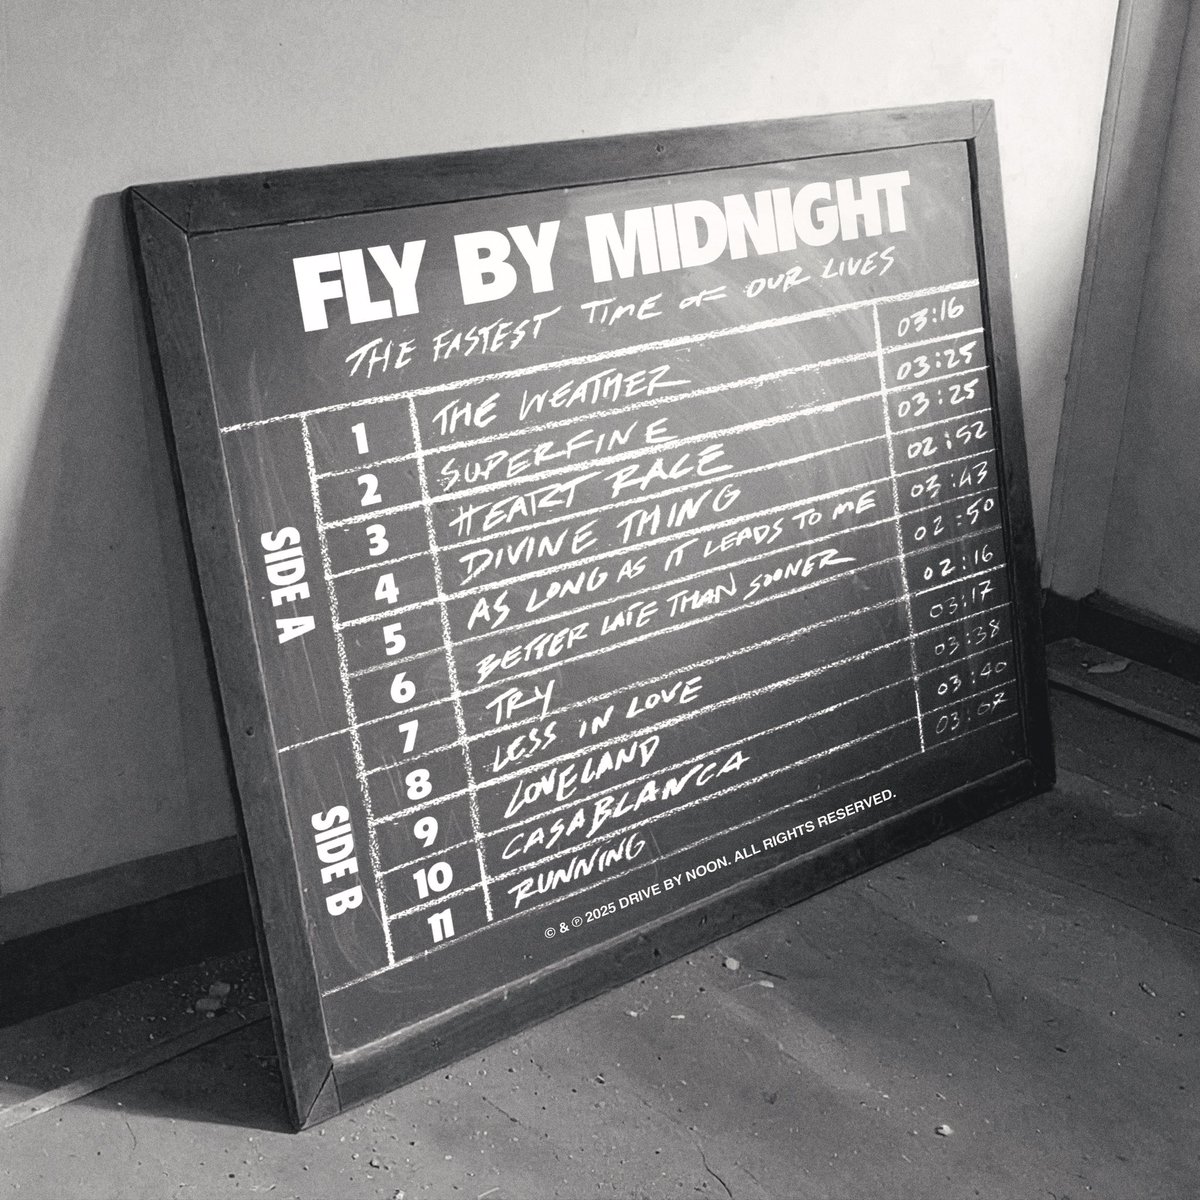 FLY BY MIDNIGHT
THE FASTEST TIME OF OUR LIVES
SIDE A
1 THE WEATHER 03:16
2 SUPERFINE 03:25
3 HEART RACE 03:25
4 DIVINE THING 02:52
5 AS LONG AS IT LEADS TO ME 03:43
6 BETTER LATE THAN SOONER 02:50
SIDE B
7 TRY 02:16
8 LESS IN LOVE 03:17
9 LOVELAND 03:38
10 CASABLANCA 03:40
11 RUNNING 03:07
© & ℗ 2025 DRIVE BY NOON. ALL RIGHTS RESERVED.